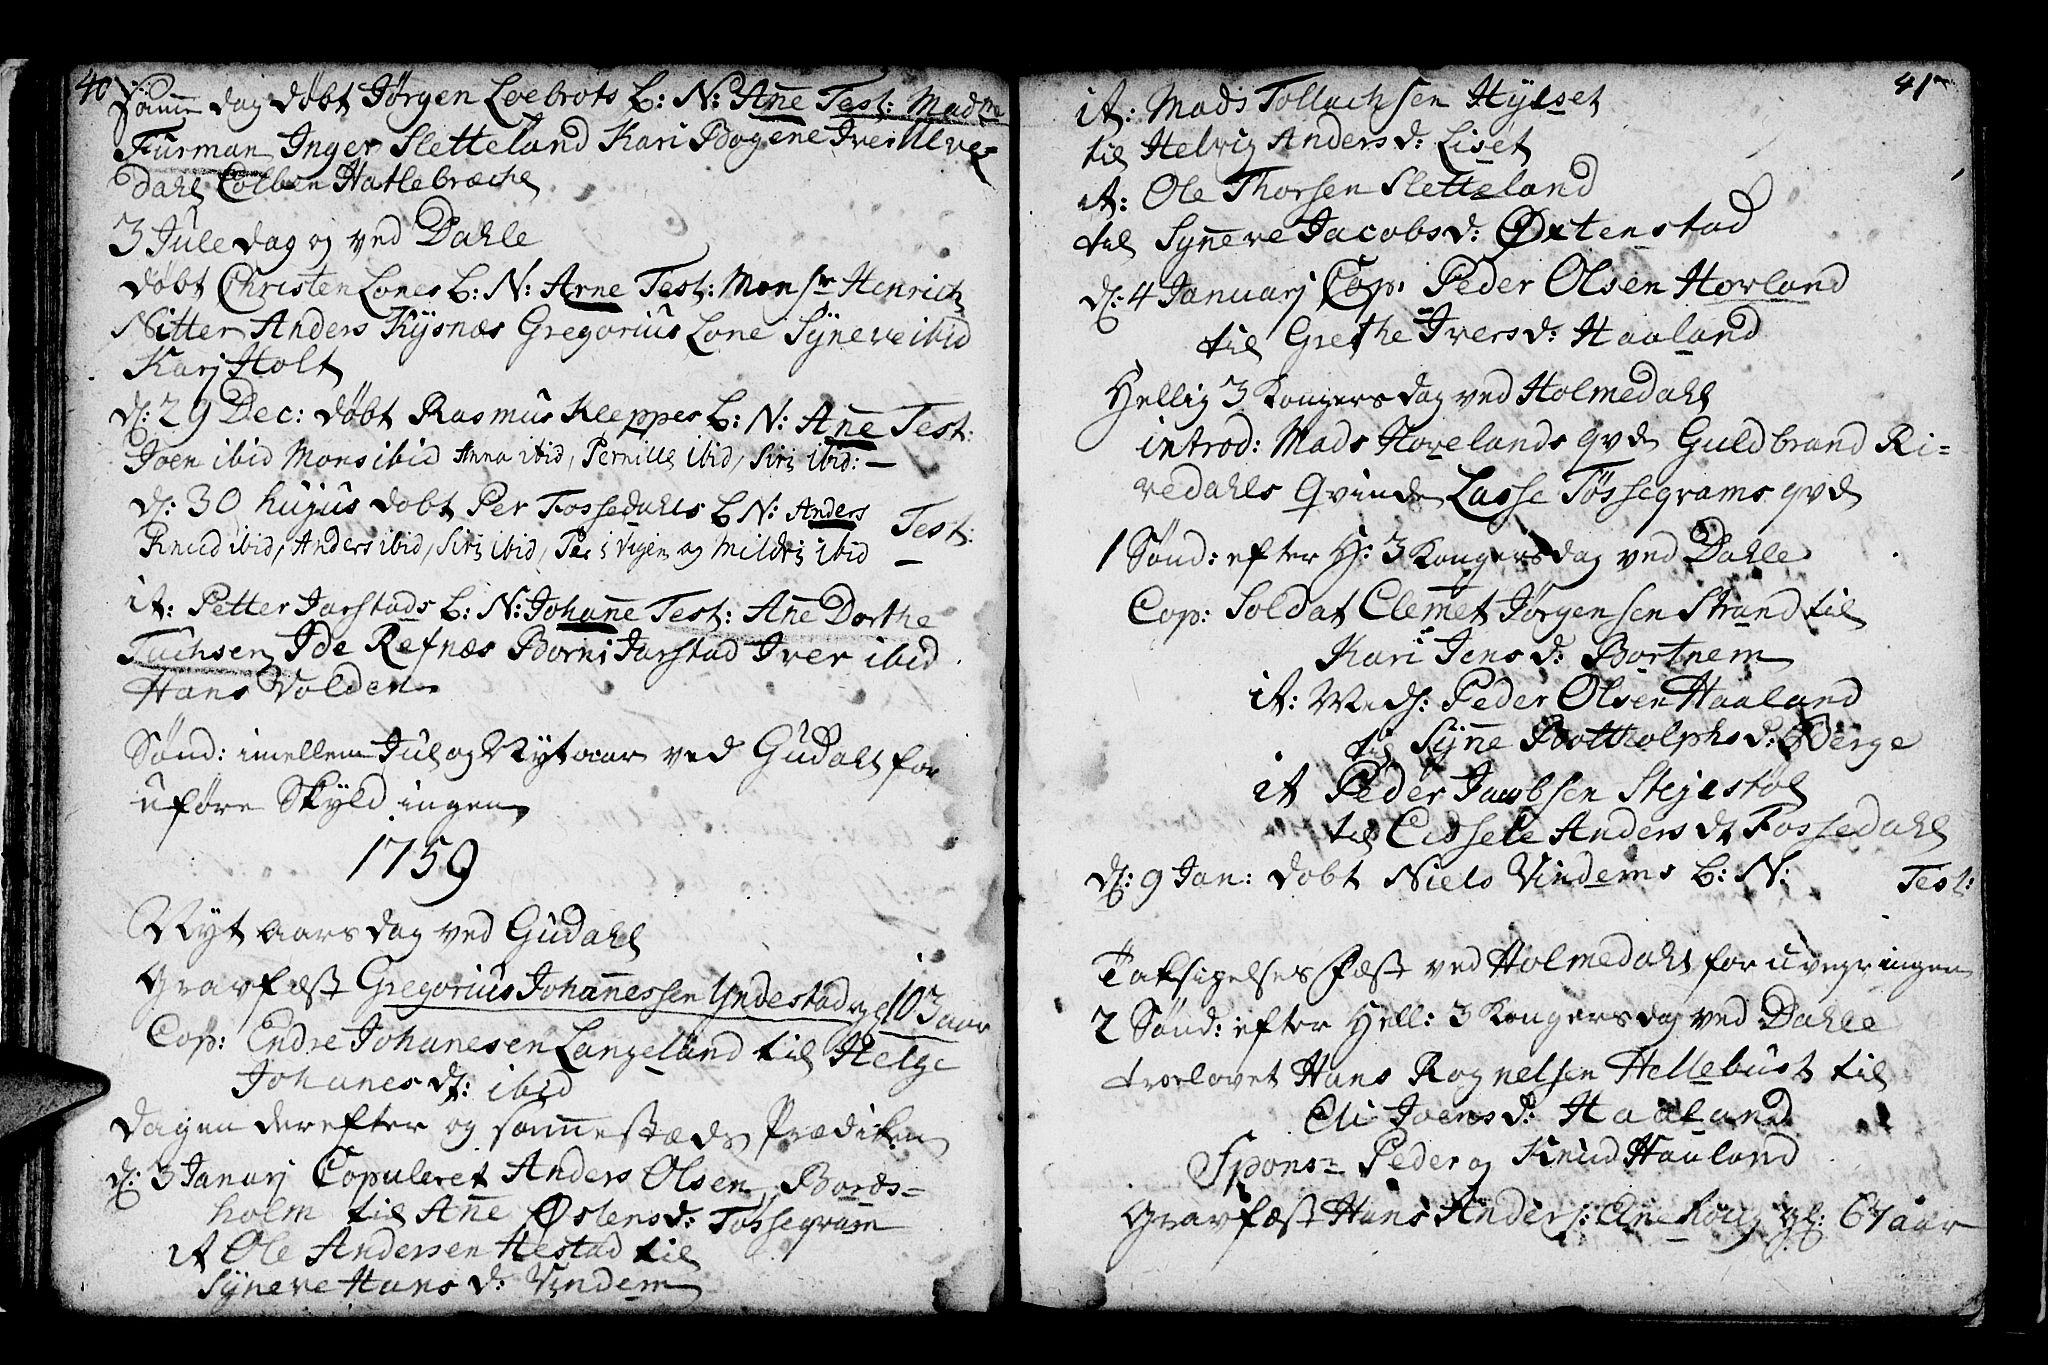 40
Samme dag døbt Jørgen Loebrots B: N: Añe Test: Madme
Furman Inger Sletteland Kari Bogene Iver Ulve=
dahl Colben Hatlebræche
3 Jule dag og ved Dahle
døbt Christen Lones B: N: Arne Test: Monsr Henrich
Nitter Anders Kysnæs Gregorius Lone Syneve ibid
Karj Holt
d: 29 Dec: døbt Rasmus Kleppes B: N: Añe Test:
Joen ibid Mons ibid Anna ibid, Pernille ibid, Siri ibid: —
d: 30 hujus døbt Per Fossedahls B: N: Anders Test:
Knud ibid, Anders ibid, Siri ibid, Per i Vigen og Mildri ibid —
it: Petter Jarstads B: N: Johañe Test: Añe Dorthe
Tuchsen Ide Refnæs Borni Jarstad Iver ibid
Hans Volden
Sønd: imellem Jul og Nytaar ved Gudahl for
uføre Skyld ingen
1759
Nyt aars dag ved Gudahl
Gravfæst Gregorius Johañessen Yndestad gl 103 aar
Cop: Endre Johanesen Langeland til Helge
Johanes d: ibid
Dagen derefter og sam̃estæds Prædiken
d: 3 Januarj Copuleret Anders Olsen Bords=
holm til Añe Østens d: Tøssegram
it Ole Andersen Hestad til
Syneve Hans d: Vindem
41
it: Mads Tollachsen Hylset
til Helvig Anders d: Liset
it: Ole Thorsen Sletteland
til Syñeve Jacobs d: Øxtenstad
d: 4 Januarj Cop: Peder Olsen Hovland
til Grethe Ivers d: Haaland
Hellig 3 Kongers dag ved Holmedahl
introd: Mads Hovelands qvd Guldbrand Ri=
vedahls Qvinde Lasse Tøssegrams qvd
1 Sønd: efter H: 3 Kongers dag ved Dahle
Cop: Soldat Clem̃et Jørgensen Strand til
Kari Jens d: Bortnem
it: Peder Olsen Haaland
til Syñe Bottolphs d: Berge
it Peder Jacobsen Stejestøl
til Cissele Anders d: Fossedahl
d: 9 Jan: døbt Niels Vindems B: N: Test:
Taksigelses Fæst ved Holmedahl for uvejr ingen
2 Sønd: efter Hell: 3 Kongers dag ved Dahle
trolovet Hans Rognelsen Hellebust til
Eli Joens d: Haaland
Spons= Peder og Knud Haaland
Gravfæst Hans Anders: gl: 67 aar